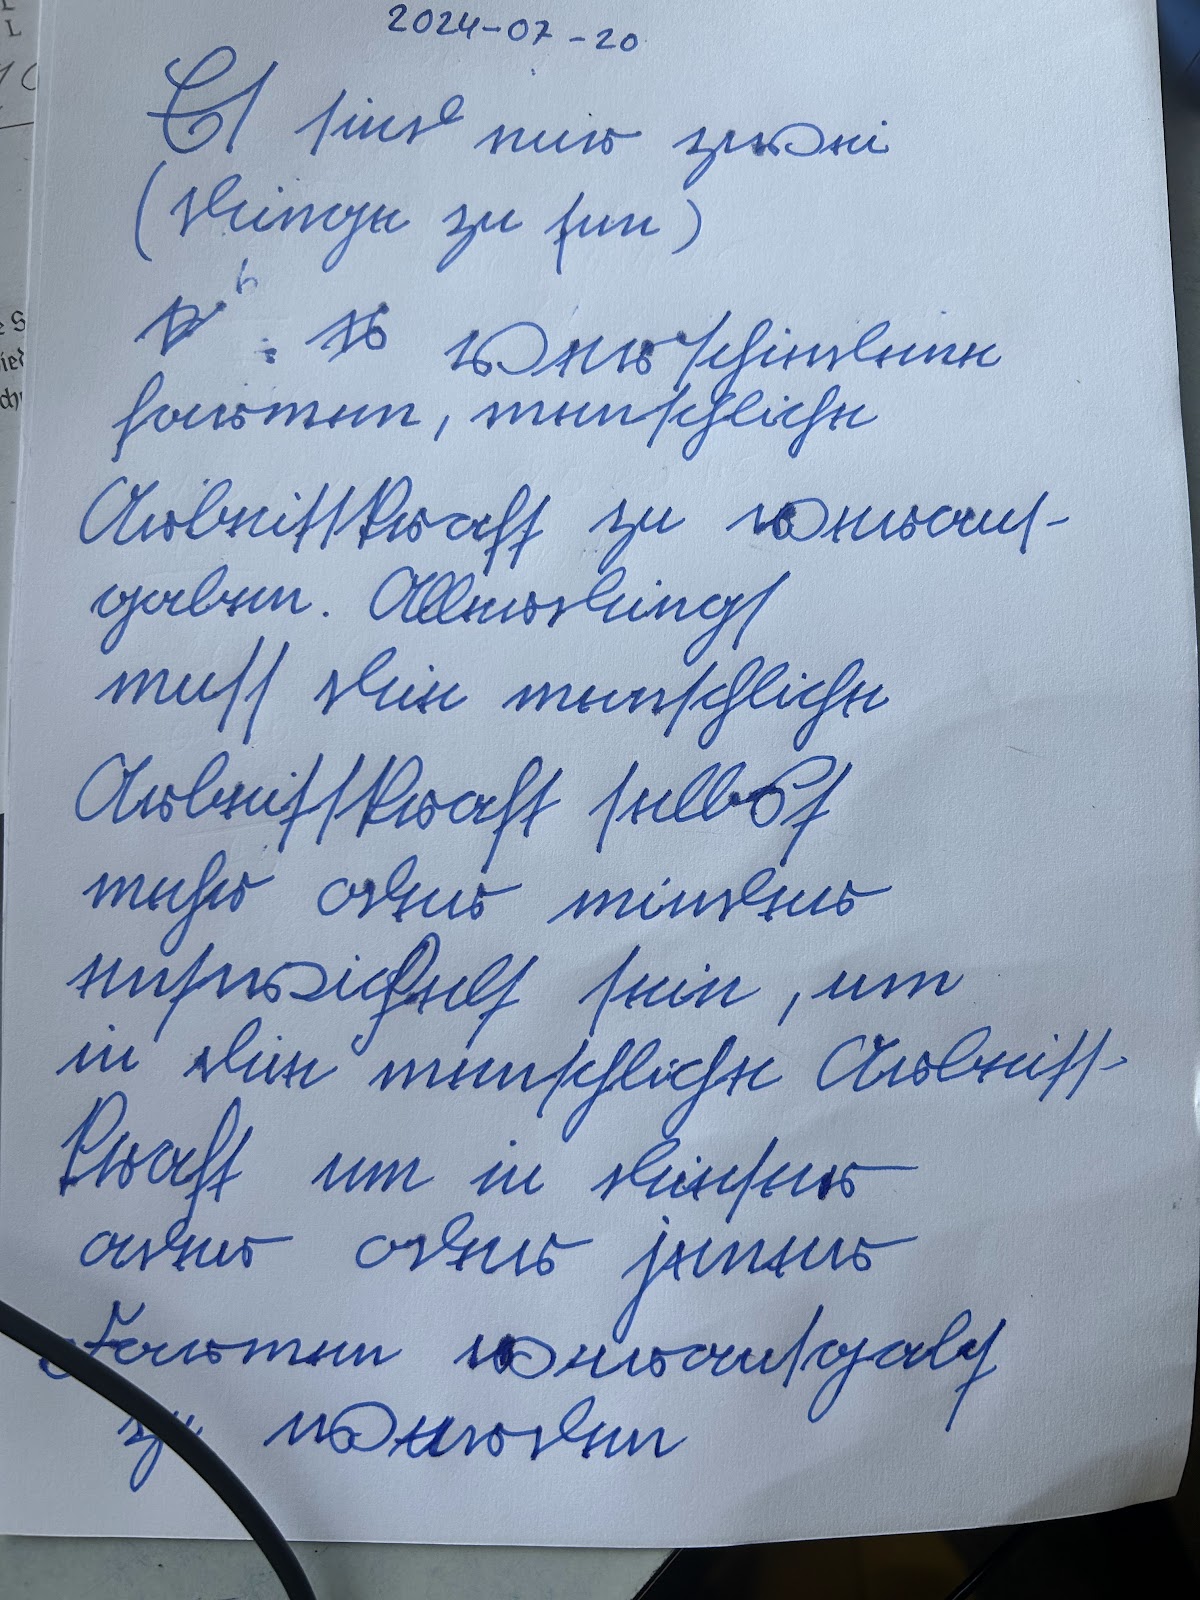 2024-07-20
Es sind nur zwei
(dinge zu tun)
verschiedene
formen, menschliche
Arbeitskraft zu veraus-
gaben. Allerdings
muss die menschliche
Arbeitskraft selbst
mehr oder minder
entwickelt sein, um
in die menschliche Arbeits-
kraft um in dieser
oder oder jener
Formen verausgabt
zu werden